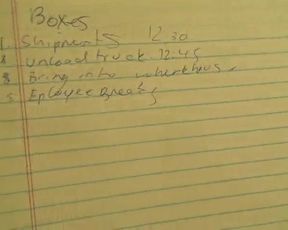 Boxes
1. Shipments 12:30
unload truck 12:45
Bring into
5 Eployee Breaks